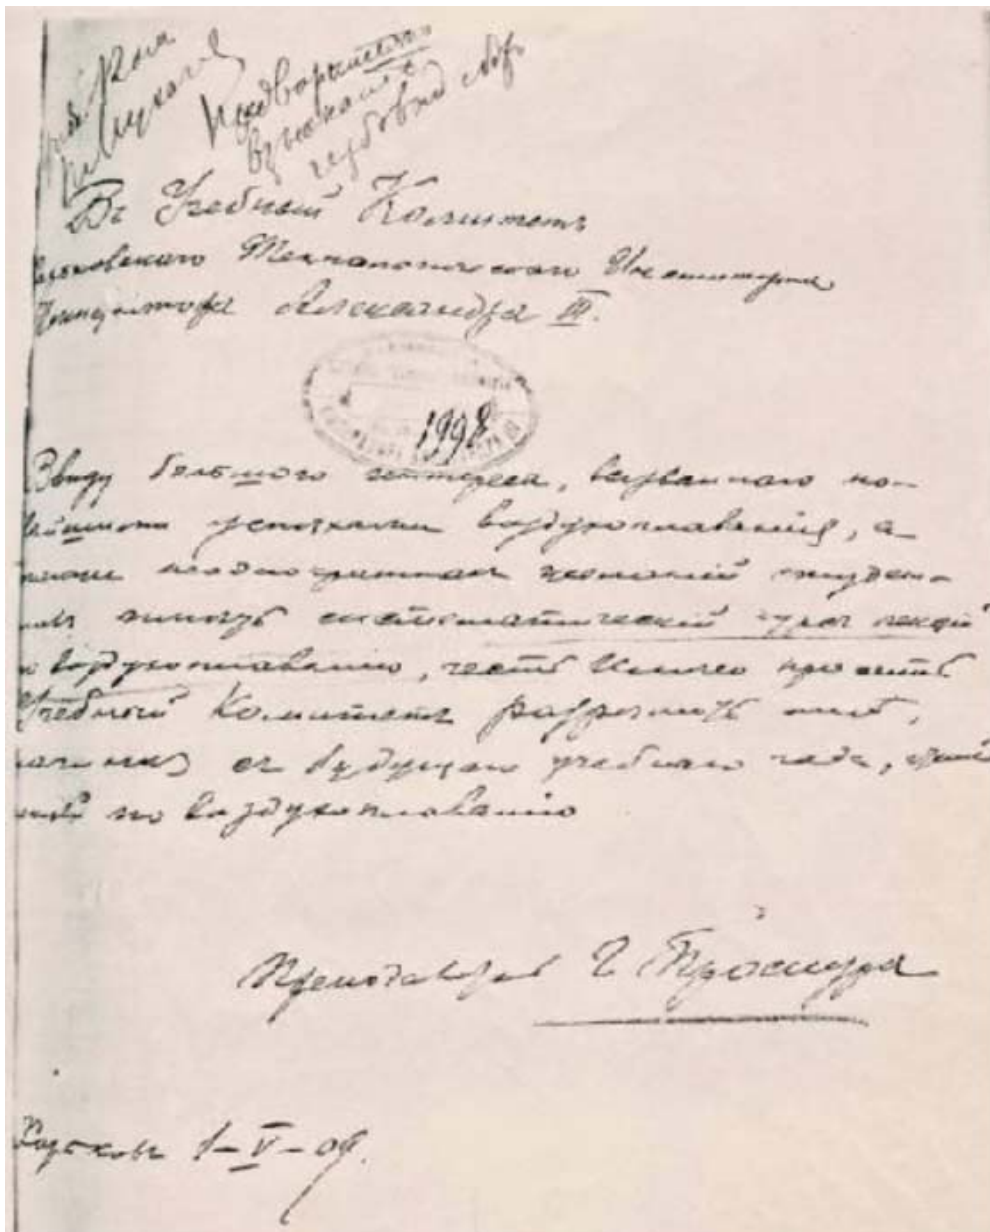 Предварительно
взыскать
гербовый сбор
Въ Учебный Комитетъ
Харьковскаго Технологическаго Института
Императора Александра III.
1998
Ввиду большого интереса, вызваннаго но-
вѣйшими успѣхами воздухоплаванія, а
также неоднократных желаний студен-
товъ имѣть систематическій курсъ лекцій
по воздухоплаванію, честь имѣю просить
Учебный Комитетъ разрѣшить мнѣ,
начиная съ будущаго учебнаго года, чтеніе
лекцій по воздухоплаванію
Преподаватель Г Проскура
Харьковъ 1-V-09.